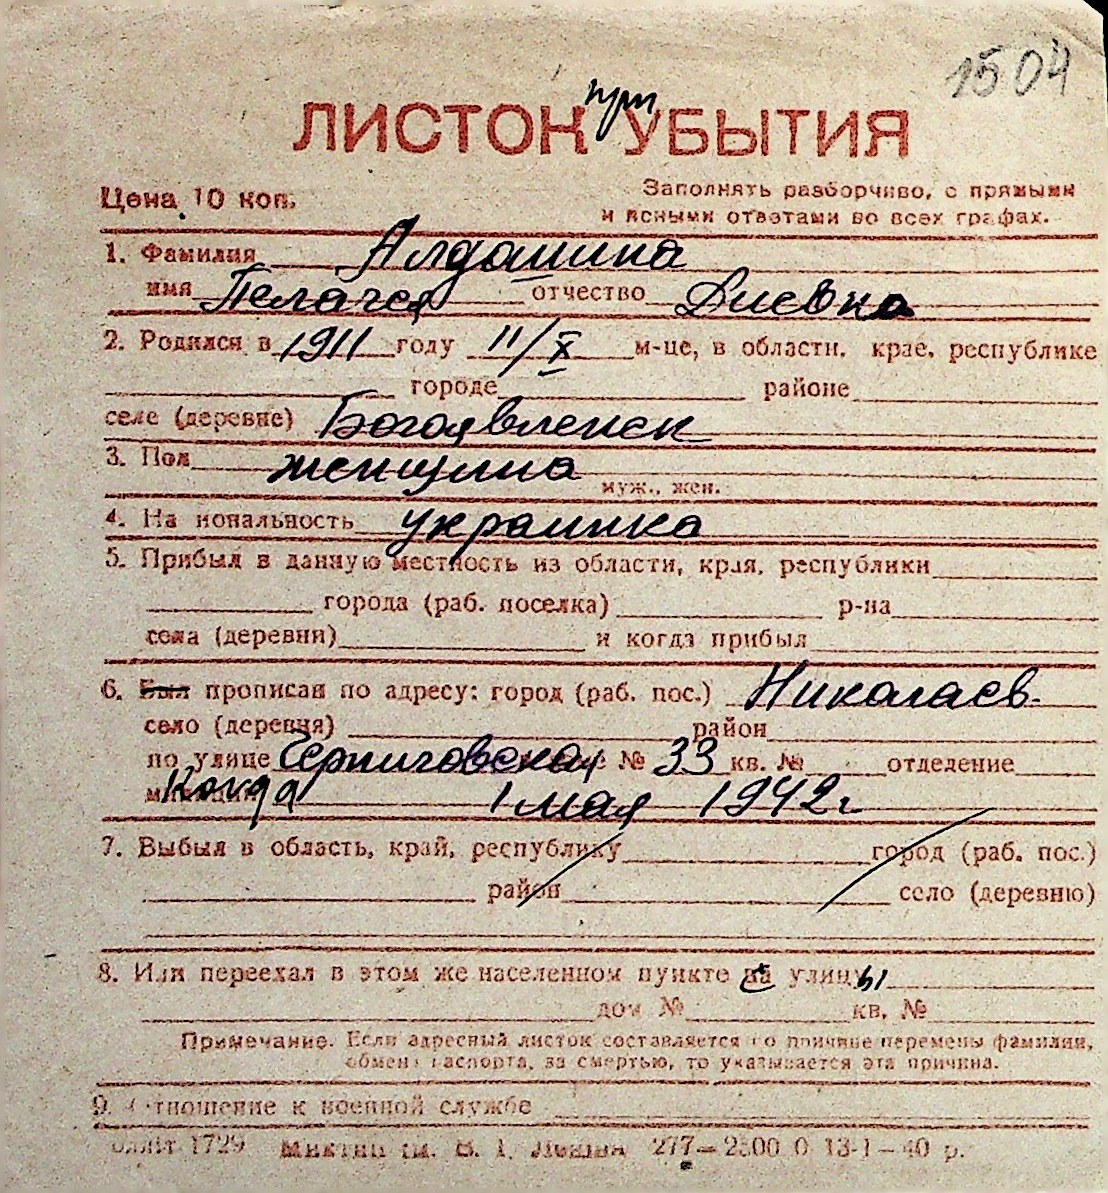 1504
при
ЛИСТОК УБЫТИЯ
Цена 10 коп.
Заполнять разборчиво, с прямыми
и ясными ответами во всех графах.
1. Фамилия Алдошина
имя Пелагея отчество Диевна
2. Родился в 1911 году 11/X м-це, в области, крае, республике
городе районе
селе (деревне) Богоявленск
3. Пол женщина
муж., жен.
4. На иональность украинка
5. Прибыл в данную местность из области, края, республики
города (раб. поселка) р-на
села (деревни) и когда прибыл
6. Был прописан по адресу: город (раб. пос.) Николаев
село (деревня) район
по улице Черниговская № 33 кв. № отделение
Когда 1 мая 1942 г
7. Выбыл в область, край, республику город (раб. пос.)
район село (деревню)
8. Или переехал в этом же населенном пункте с улицы
дом № кв. №
Примечание. Если адресный листок составляется по причине перемены фамилии,
обмена паспорта, за смертью, то указывается эта причина.
9. Отношение к военной службе
1729 им. В. І. Леніна 277—2500 0 13-1—40 р.